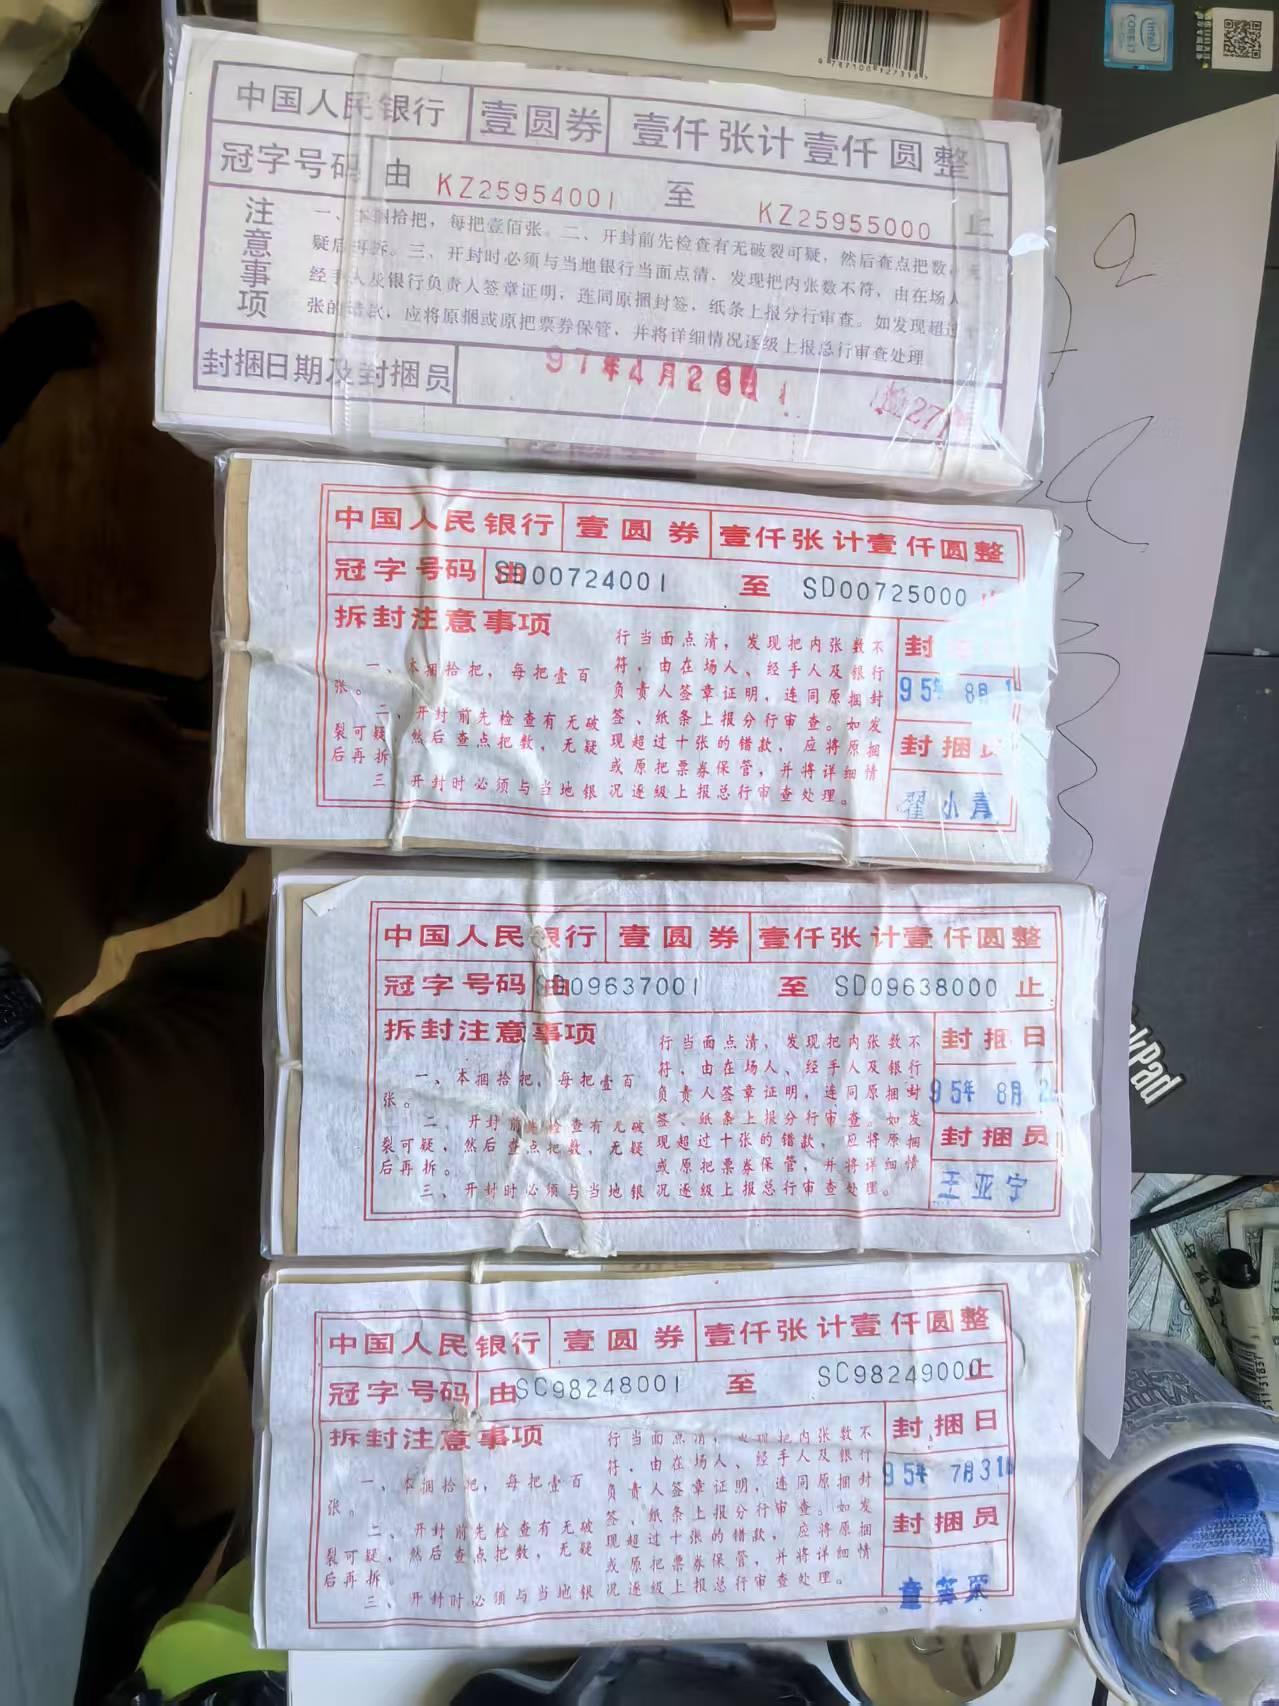 intel
CORE i7
9787108127318
中国人民银行 壹圆券 壹仟张计壹仟圆整
冠字号码 由 KZ25954001 至 KZ25955000 止
注意事项
一、本捆拾把，每把壹佰张。二、开封前先检查有无破裂可疑，然后查点把数，
疑后再拆。三、开封时必须与当地银行当面点清、发现把内张数不符，由在场人
经手人及银行负责人签章证明，连同原捆封签，纸条上报分行审查。如发现超过
张的错款，应将原捆或原把票券保管，并将详细情况逐级上报总行审查处理
封捆日期及封捆员 97年4月26日
中国人民银行 壹圆券 壹仟张计壹仟圆整
冠字号码 由 SD00724001 至 SD00725000 止
拆封注意事项
一、本捆拾把，每把壹百
张。
二、开封前先检查有无破
裂可疑，然后查点把数，无疑
后再拆
三、开封时必须与当地银
行当面点清，发现把内张数不
符，由在场人、经手人及银行
负责人签章证明，连同原捆封
签、纸条上报分行审查。如发
现超过十张的错款，应将原捆
或原把票券保管，并将详细情
况逐级上报总行审查处理。
封
95年 8月 1
封捆员
翟小青
中国人民银行 壹圆券 壹仟张计壹仟圆整
冠字号码 由 SD09637001 至 SD09638000 止
拆封注意事项
一、本捆拾把，每把壹百
张。
二、开封前先检查有无破
裂可疑，然后查点把数，无疑
后再拆。
三、开封时必须与当地银
行当面点清，发现把内张数不
符，由在场人、经手人及银行
负责人签章证明，连同原捆封
签、纸条上报分行审查。如发
现超过十张的错款，应将原捆
或原把票券保管，并将详细情
况逐级上报总行审查处理。
封捆日
95年 8月 2
封捆员
王亚宁
中国人民银行 壹圆券 壹仟张计壹仟圆整
冠字号码 由 SC98248001 至 SC98249000 止
拆封注意事项
一、本捆拾把，每把壹百
张。
二、开封前先检查有无破
裂可疑，然后查点把数，无疑
后再拆。
三、开封时必须与当地银
行当面点清，发现把内张数不
符，由在场人、经手人及银行
负责人签章证明，连同原捆封
签、纸条上报分行审查。如发
现超过十张的错款，应将原捆
或原把票券保管，并将详细情
况逐级上报总行审查处理。
封捆日
95年 7月31日
封捆员